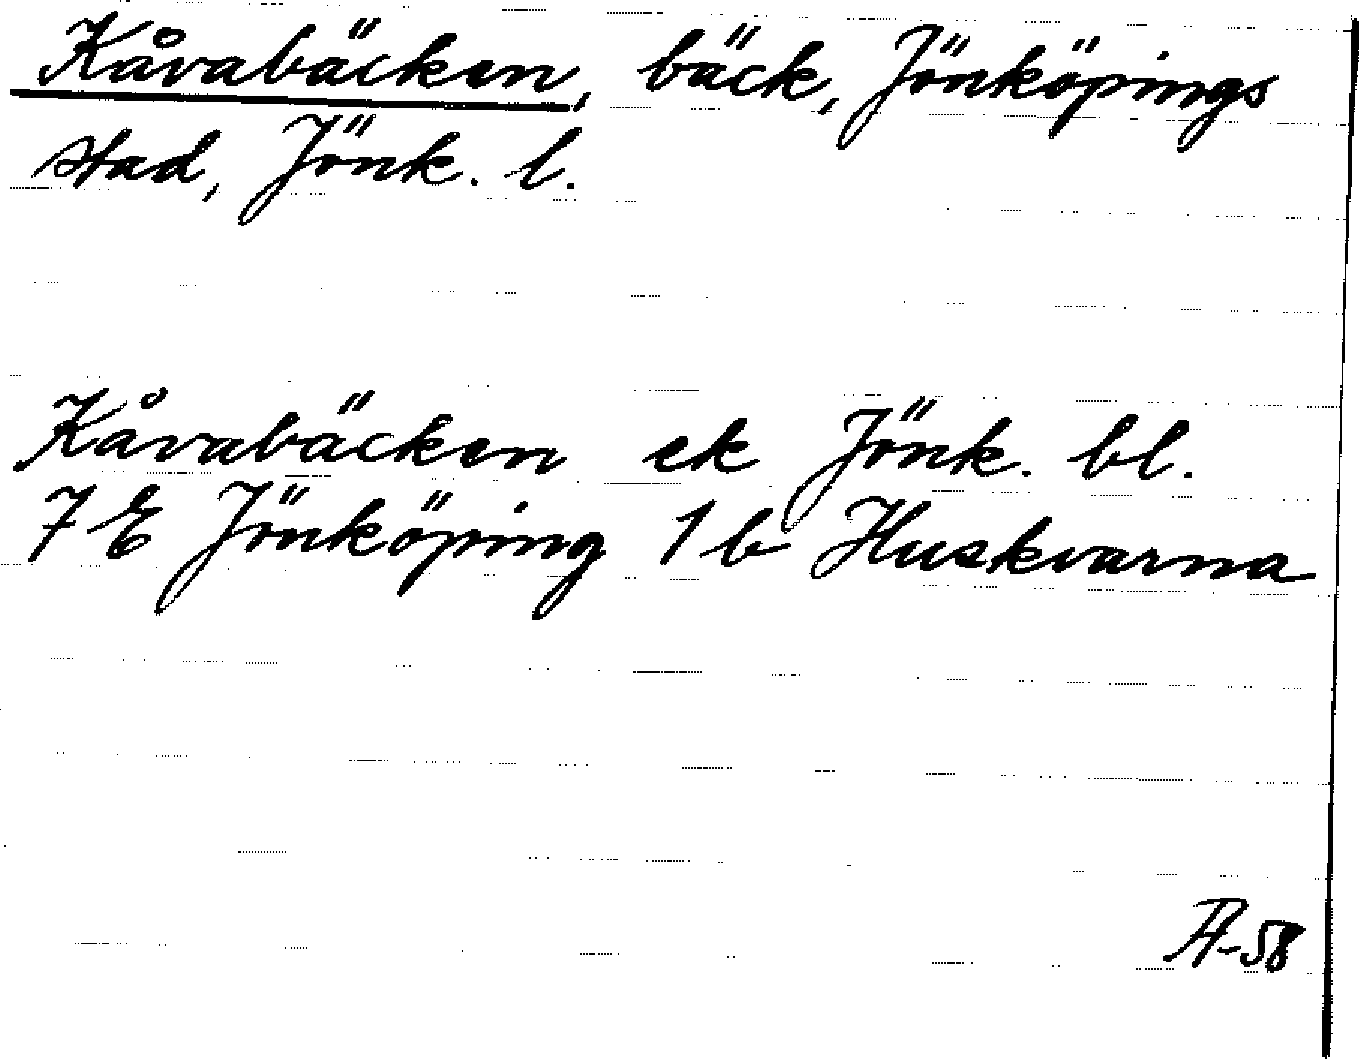 Kåvabäcken, bäck, Jönköpings
stad, Jönk. l.
Kåvabäcken ek Jönk. bl.
7 E Jönköping 1 b Huskvarna
-58